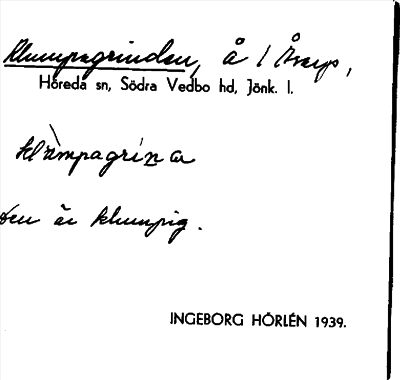 Klumpagrinden, å / Årarp,
Höreda sn, Södra Vedbo hd, Jönk. l.
klumpagrina
den är klumpig.
INGEBORG HÖRLÉN 1939.